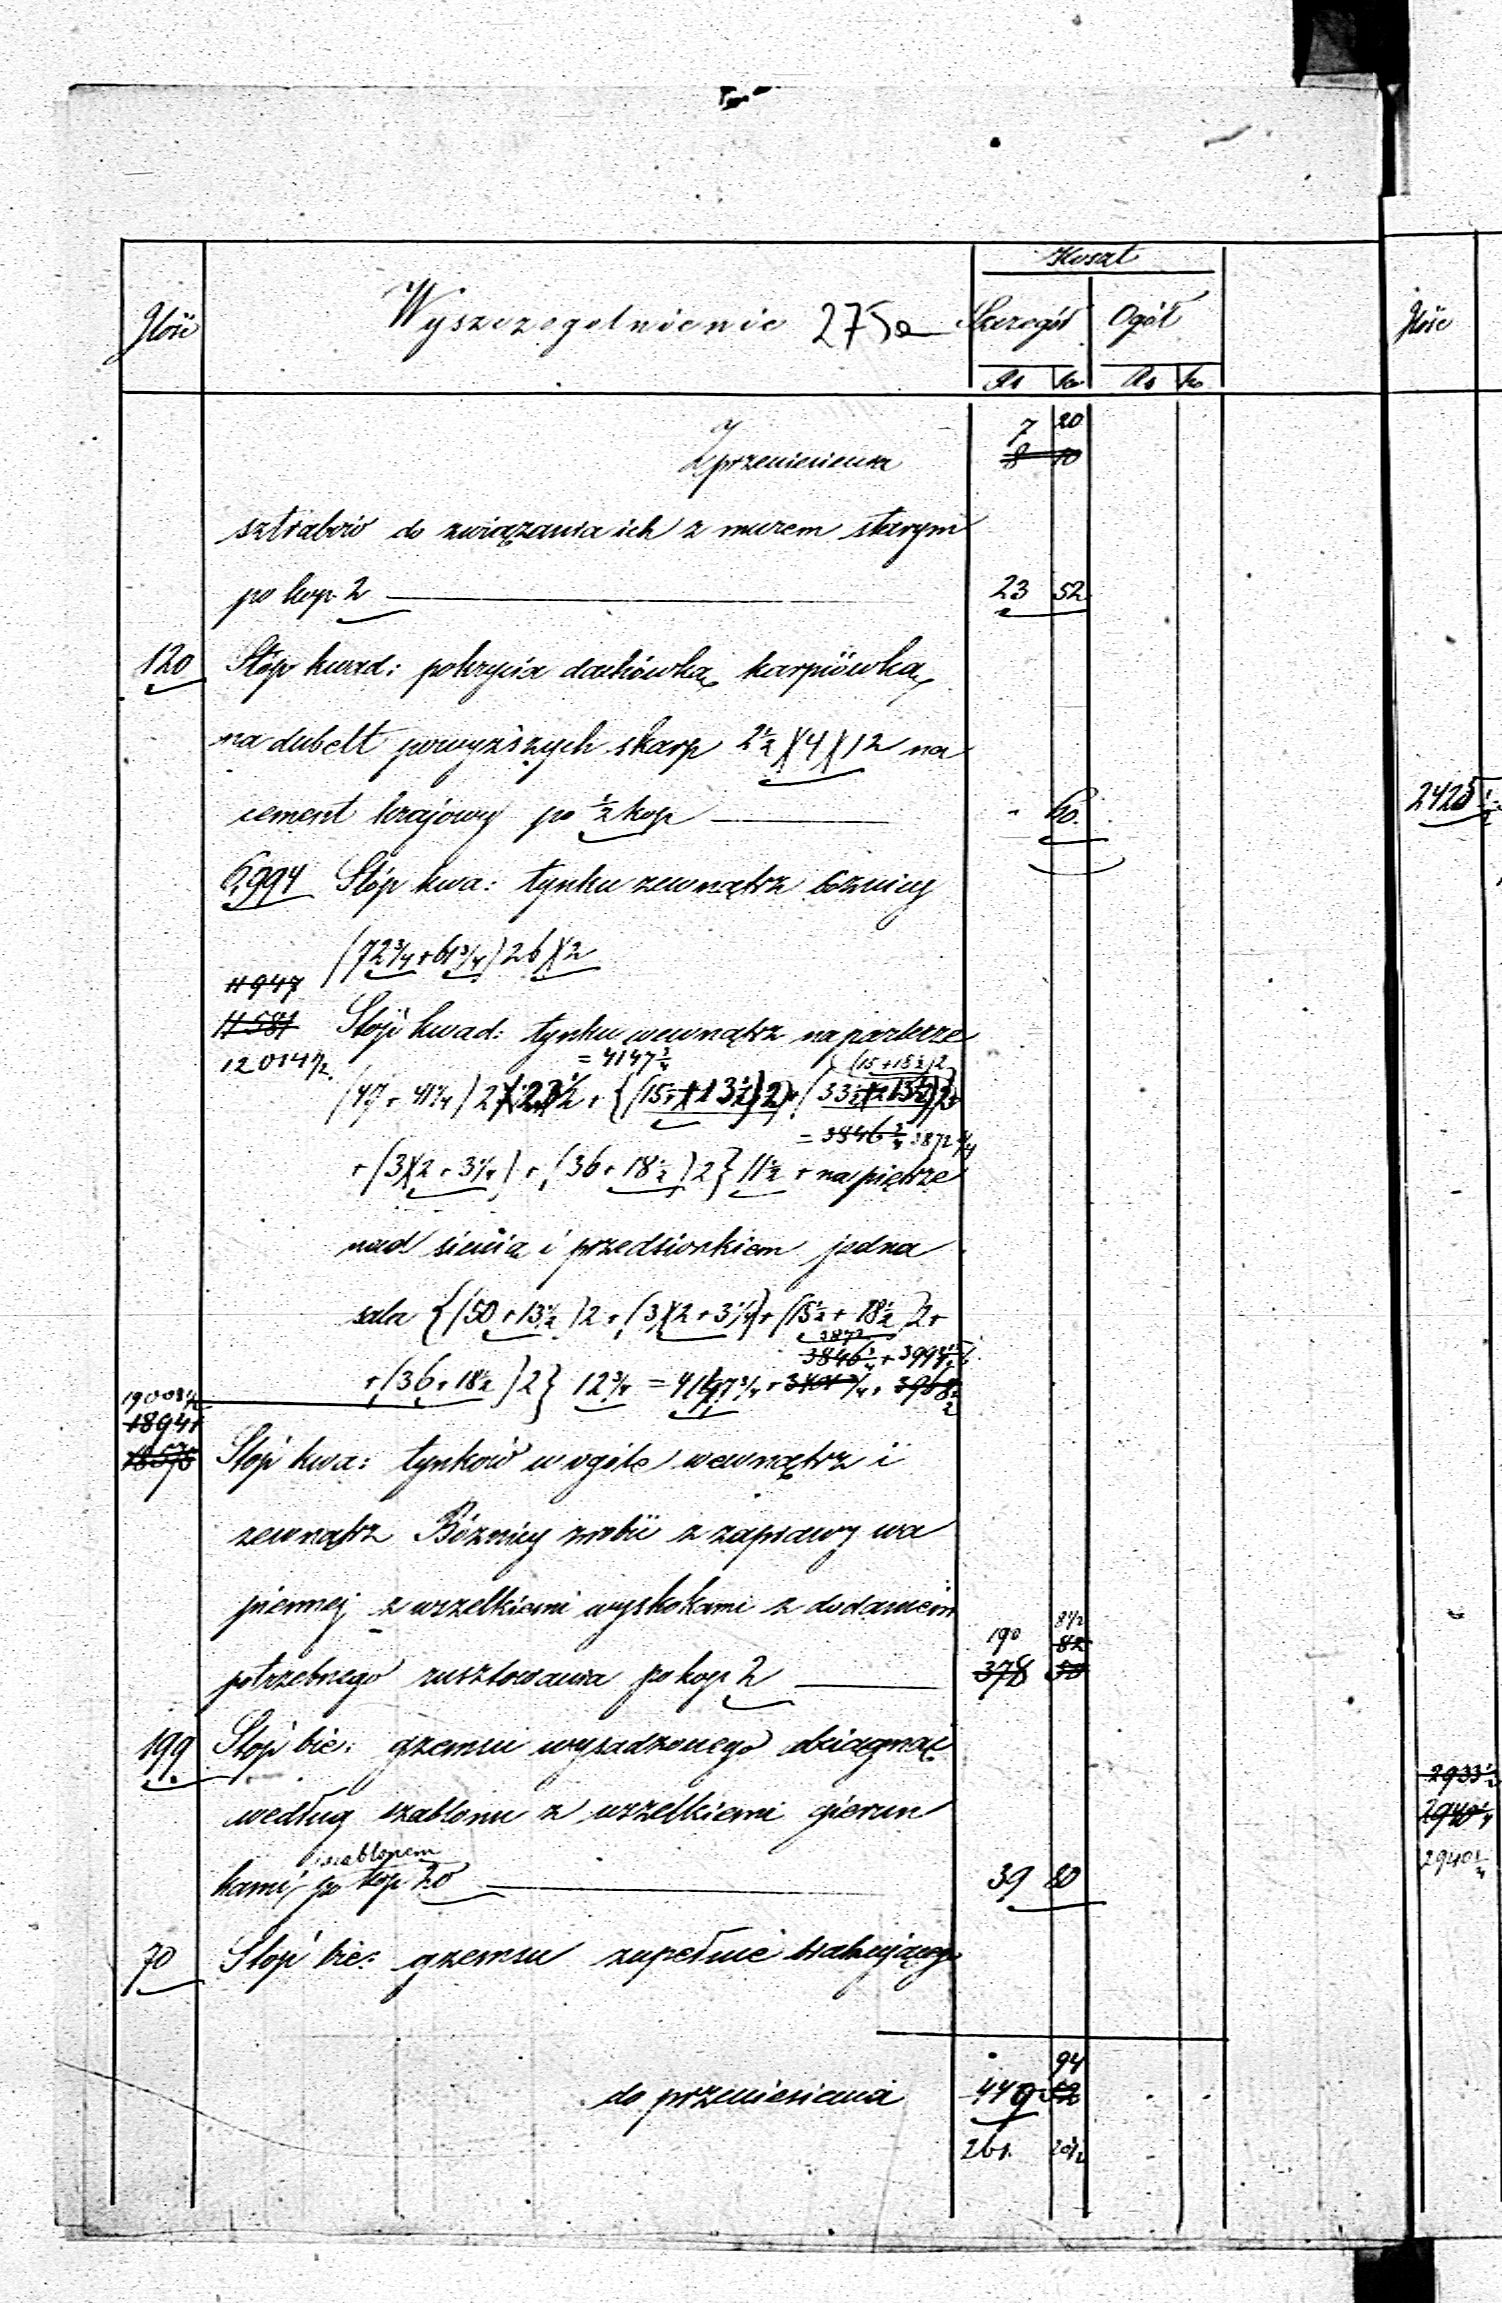 Koszt
Ilość Wyszczególnienie 275a Szczegół Ogół Ilość
Rs ko Rs ko
7 20
Z przeniesienia 8 10
sztrabów do związania ich z murem starym
po kop. 2 23 52
120 Stóp kwad: pokrycia dachówką karpiówką
na dubelt powyższych skarp 2½)(4)(12 na
cement krajowy po ½ kop - 60. 2425½
6,994 Stóp kwa: tynku zewnątrz bóżnicy
(72¾+61¾)26)(2
11947
11581 Stóp kwad: tynku wewnątrz na parterze
12014½ = 4147¾ (15+15½)2
(47+41¼)2)(23½+{(15½+13½)2+(33½+13½)2+
= 3846¾ 3872¼
+(3)(2+3¼)+(36+18½)2}11½+na piętrze
nad sienią i przedsionkiem jedna
sala {(50+13½)2+(3)(2+3¼)+(15½+18½)2+
3872
3846¾+3994
+(36+18½)2}12¾=4147¾+ + 3968½
19008½
18941
18575 Stóp kwa: tynków w ogóle wewnątrz i
zewnątrz Bóżnicy zrobić z zaprawy wa
piennej z wszelkiemi wyskokami z dodaniem
190 8½
82
potrzebnego rusztowania po kop 2 378 50
199 Stóp bie: gzemsu wysadzonego obciągnąć
2933½
według szablonu z wszelkiemi gierun 2940¼
szablonem
kami po kop 20 39 80 2940¼
70 Stóp bie: gzemsu zupełnie brakującego
94
do przeniesienia 449 52
261. 20½